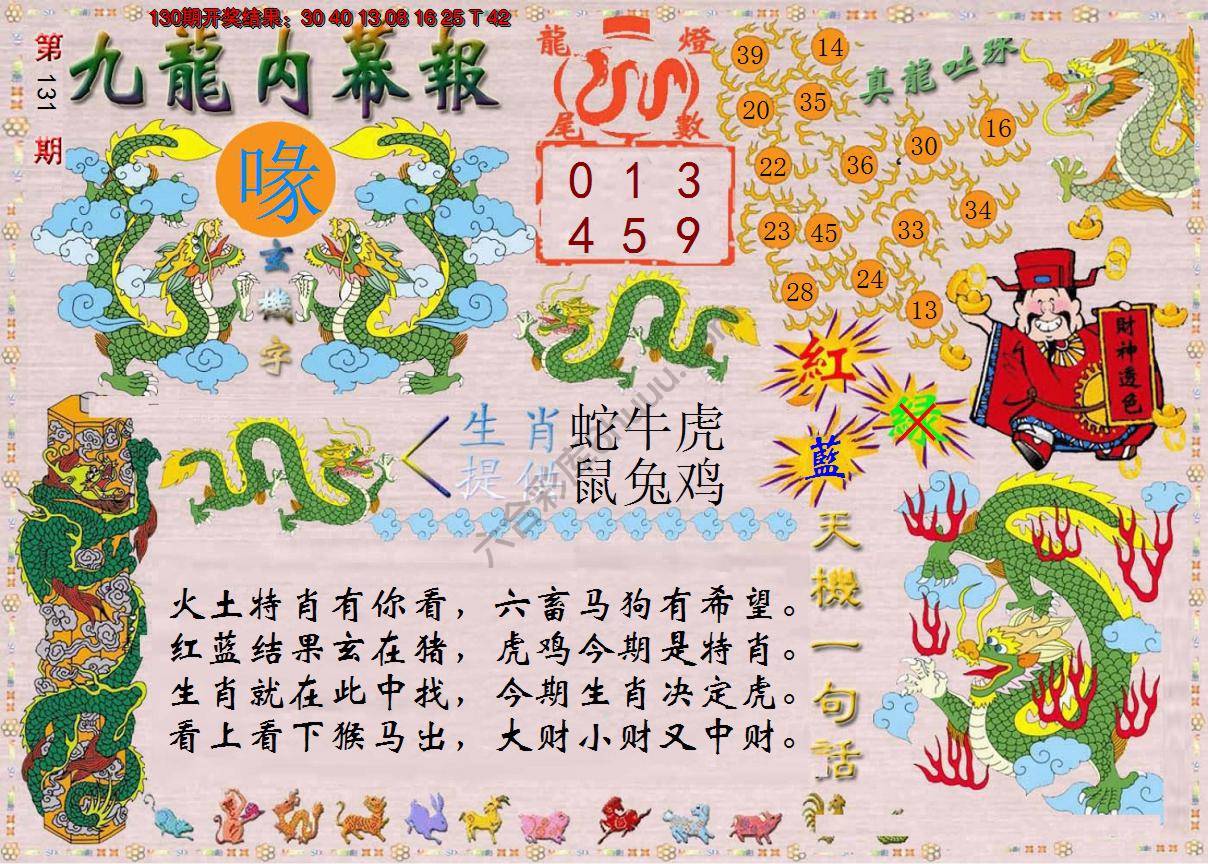 130期开奖结果：30 40 13 08 16 25 T 42
第131期
九龍内幕報
喙
玄機字
龍燈
尾數
0 1 3
4 5 9
真龍吐珠
39
14
20
35
22
36
30
16
23
45
33
34
28
24
13
財神透色
紅
绿
藍
生肖
提供
蛇牛虎
鼠兔鸡
天機一句話
火土特肖有你看，六畜马狗有希望。
红蓝结果玄在猪，虎鸡今期是特肖。
生肖就在此中找，今期生肖决定虎。
看上看下猴马出，大财小财又中财。